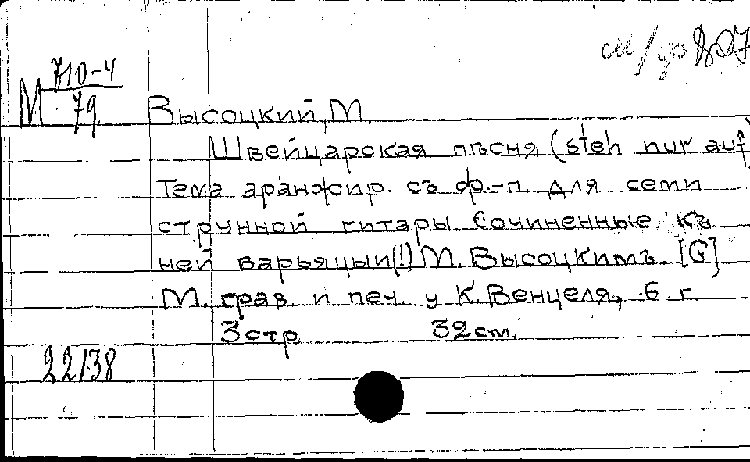 М 710-4
79
Высоцкий, М.
Швейцарская пѣсня (steh nur auf)
Тема аранжир. съ ф.-п. для семи
струнной гитары. Сочиненные къ
ней варьяции(!) М. Высоцкимъ. [G]
М. грав. и печ. у К. Венцеля, б. г.
3 стр. 32 cm.
22138